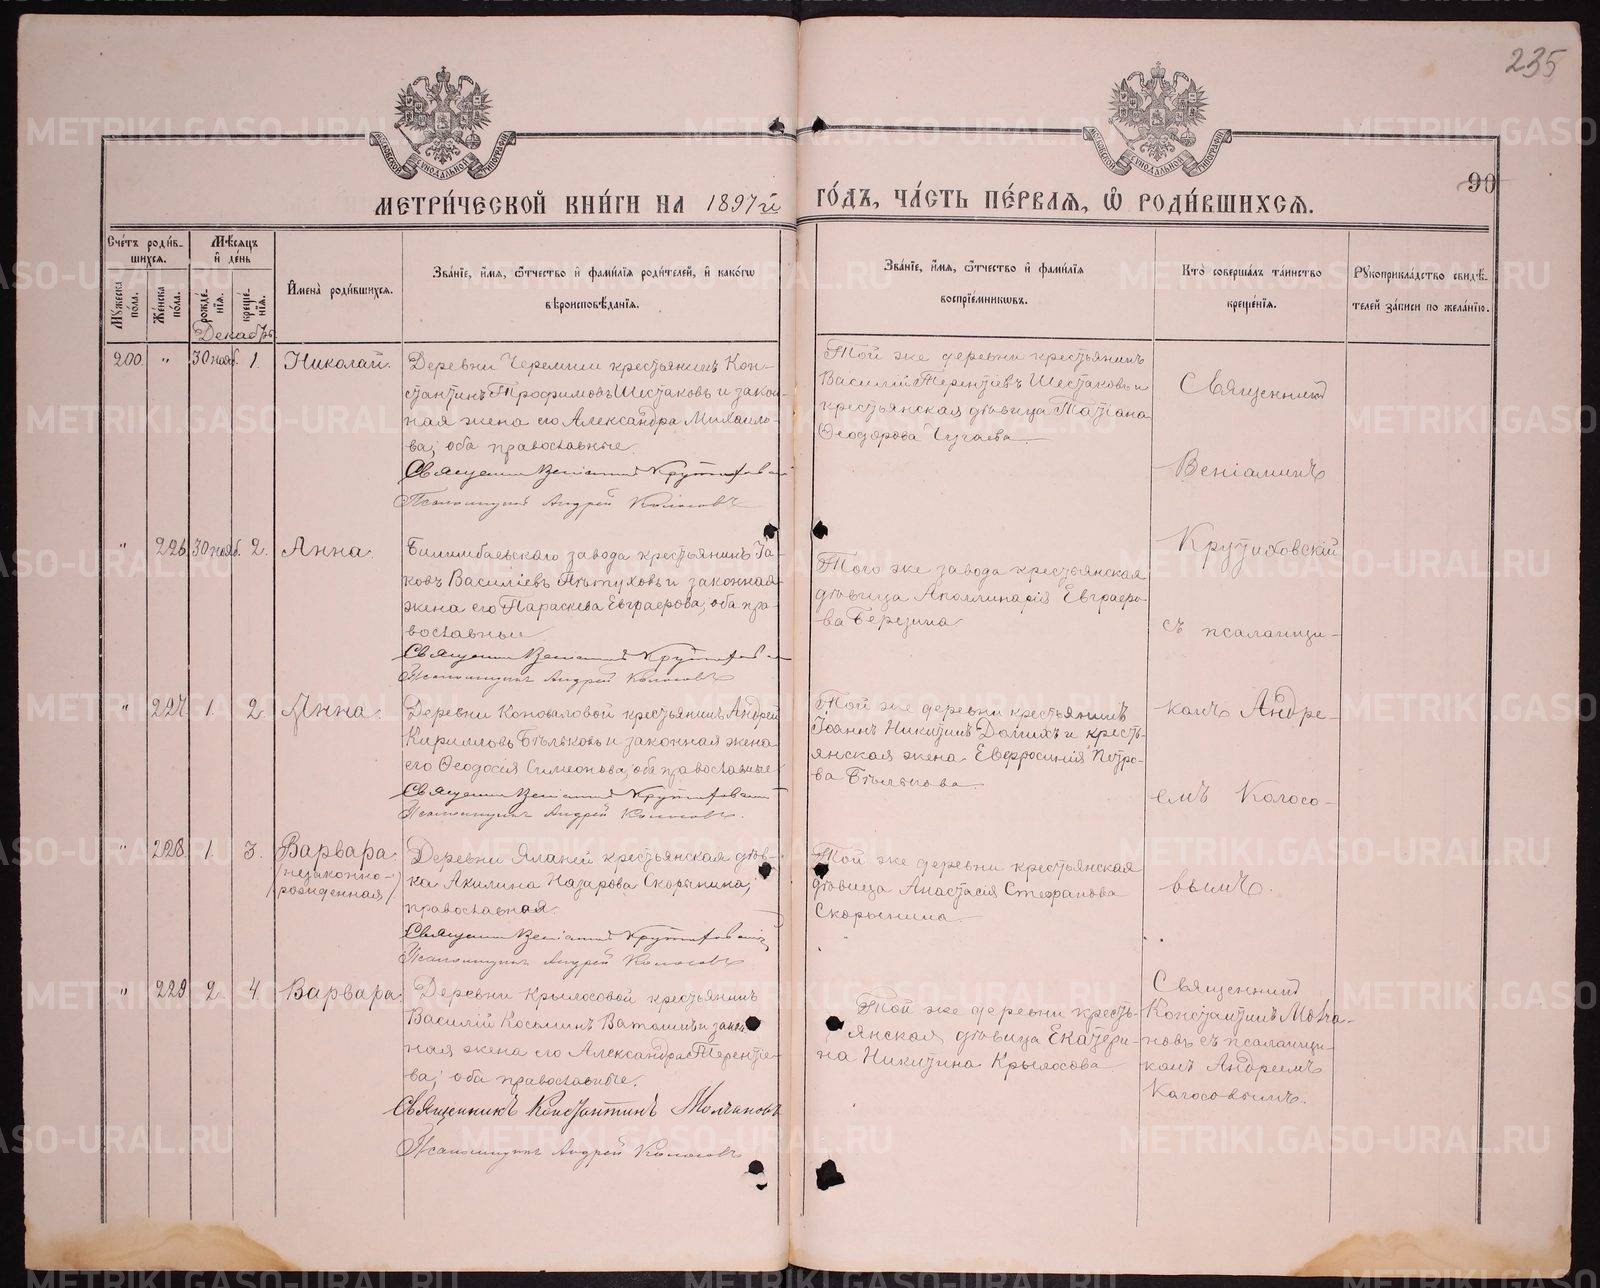 235
90
МЕТРИ́ЧЕСКОЙ КНИ́ГИ НА 1897й ГО́ДЪ, ЧА́СТЬ ПЕ́РВАЯ, Ѡ РОДИ́ВШИХСЯ.
МОСКОВСКОЙ СѴНОДАЛЬНОЙ ТИПОГРАФІИ
МОСКОВСКОЙ СѴНОДАЛЬНОЙ ТИПОГРАФІИ
Сче́тъ роди́в-
шихся.
Му́жеска по́ла.
Же́нска по́ла.
Мѣ́сяцъ
и де́нь
рожде́нія.
креще́нія.
Имена̀ роди́вшихся.
Зва́ніе, и́мя, ѻ҆́тчество и фами́лія роди́телей, и како́гѡ
вѣроисповѣ́данія.
Зва́ніе, и́мя, ѻ҆́тчество и фами́лія
воспріе́мниковъ.
Кто̀ соверша́лъ та́инство
креще́нія.
Рукоприкла́дство свидѣ́-
телей за́писи по жела́нію.
Декабрь
200. " 30 нояб. 1. Николай.
Деревни Черемши крестьянинъ Кон-
стантинъ Трофимовъ Шестаковъ и закон-
ная жена его Александра Михаило-
ва; оба православные.
Священникъ Веніаминъ Крутиховскій
Псаломщикъ Андрей Колосовъ
Той же деревни крестьянинъ
Василій Терентіевъ Шестаковъ и
крестьянская дѣвица Татіана
Ѳеодорова Чугаева.
Священникъ
Веніаминъ
Крутиховскій
съ псаломщи-
комъ Андре-
емъ Колосо-
вымъ.
" 226. 30 нояб. 2. Анна.
Билимбаевскаго завода крестьянинъ Іа-
ковъ Василіевъ Пѣтуховъ и законная
жена его Параскева Евграфова; оба пра-
вославные
Священникъ Веніаминъ Крутиховскій
Псаломщикъ Андрей Колосовъ
Того же завода крестьянская
дѣвица Аполлинарія Евграфо-
ва Березина
" 227. 1. 2. Анна.
Деревни Коноваловой крестьянинъ Андрей
Кирилловъ Бѣльковъ и законная жена
его Ѳеодосія Симеонова; оба православные
Священникъ Веніаминъ Крутиховскій
Псаломщикъ Андрей Колосовъ.
Той же деревни крестьянинъ
Іоаннъ Никитинъ Долгихъ и кресть-
янская жена Евфросинія Петро-
ва Бѣлькова.
" 228. 1. 3. Варвара
(незаконно-
рожденная)
Деревни Яланей крестьянская дѣв-
ка Акилина Назарова Скорынина;
православная.
Священникъ Веніаминъ Крутиховскій
Псаломщикъ Андрей Колосовъ
Той же деревни крестьянская
дѣвица Анастасія Стефанова
Скорынина.
" 229 2. 4. Варвара.
Деревни Крылосовой крестьянинъ
Василій Косьминъ Ватолинъ и закон-
ная жена его Александра Терентіе-
ва; оба православные.
Священникъ Константинъ Молчановъ
Псаломщикъ Андрей Колосовъ
Той же деревни кресть-
янская дѣвица Екатери-
на Никитина Крылосова
Священникъ
Константинъ Молча-
новъ съ псаломщи-
комъ Андреемъ
Колосовымъ.
METRIKI.GASO-URAL.RU